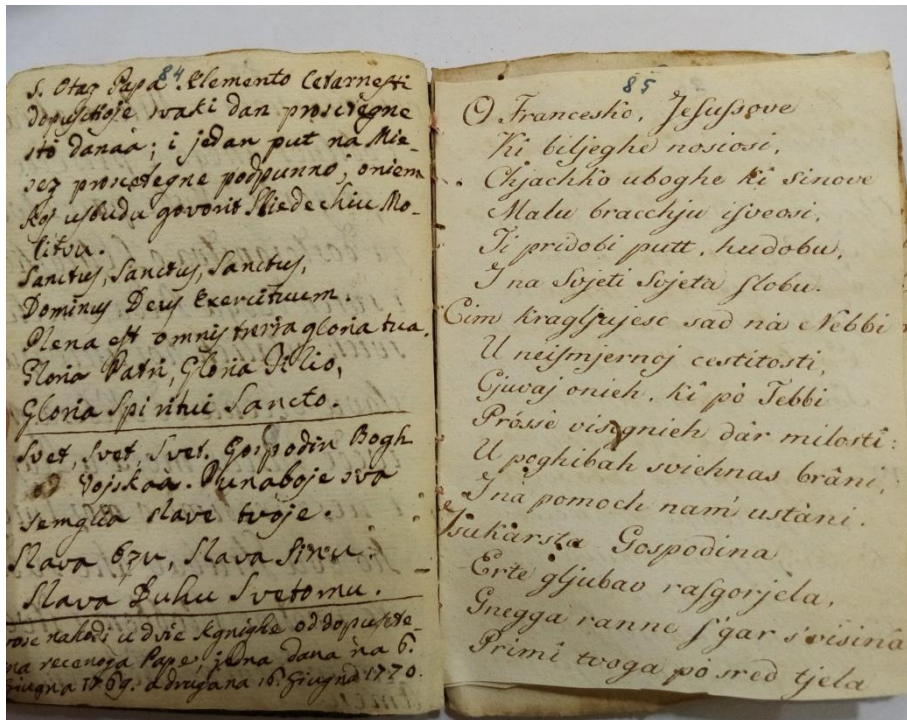 84
S. Otaz Papa Klemento Cetarnesti
dopusctioje svaki dan prosctegne
sto danaa; i jedan put na Mie-
sez prosctegne podpunno; oniem
koj usbudu govorit Sliedechiu Mo-
litvu.
Sanctus, Sanctus, Sanctus,
Dominus Deus Exercituum.
Plena est omnis terra gloria tua.
Gloria Patri, Gloria Filio,
Gloria Spiritui Sancto.
Svet, Svet, Svet. Gospodin Bogh
od Vojskaa. Punaboje sva
semglia slave tvoje.
Slava Ozu, Slava Sinu.
Slava Duhu Svetomu.
nahodi u dvie kgnighe od dopuscte-
na recenoga Pape, jedna dana na 6.
Giugna 1769. a drugana 16. Giugna 1770.
85
O Francesko, Jesussove
Ki biljeghe nosiosi,
Chjachko uboghe kî sinove
Malu bracchju isveosi,
Ti pridobi putt, hudobu,
I na Svjeti Svjeta slobu.
Cim kragljujesc sad nà Nebbi
U neismjernoj cestitosti,
Cjuvaj onieh, kî pò Tebbi
Pròsse viscgnieh dâr milostî:
U poghibah sviehnas brâni,
I na pomoch nam ustàni.
Isukârsta Gospodina
Erte gljubav rasgorjela,
Gnegga ranne s'gar s'visinâ
Primî tvoga pò sred tjela